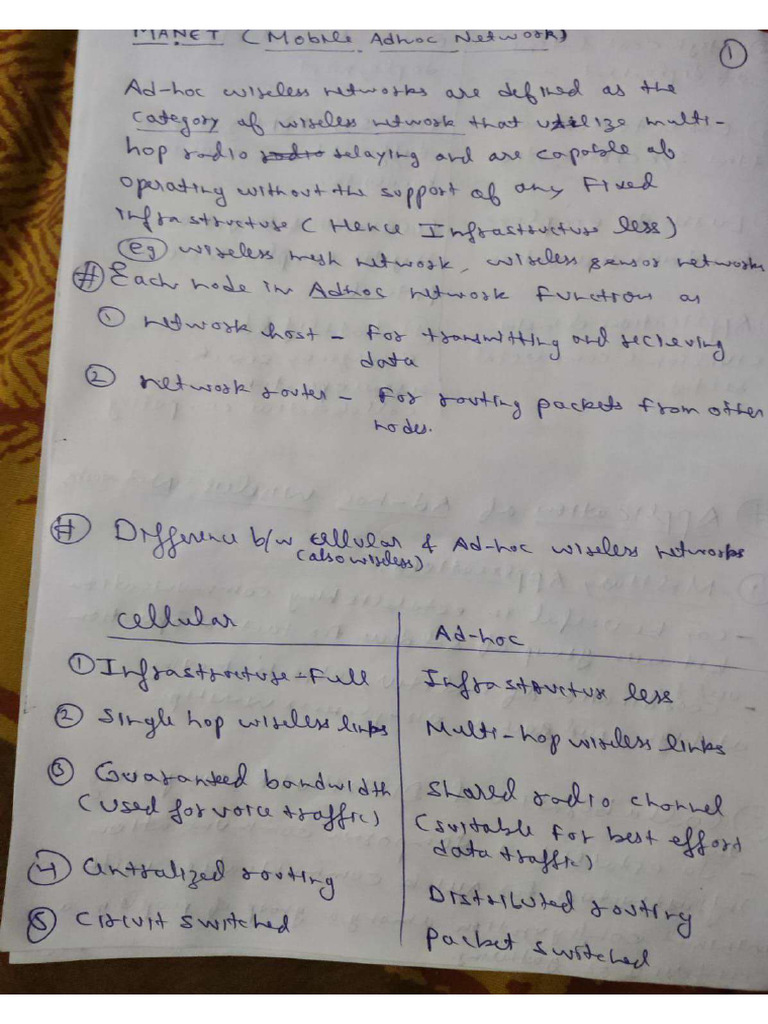 MANET (Mobile Adhoc Network)
1
Ad-hoc wireless networks are defined as the
category of wireless network that utilize multi-
hop radio radio relaying and are capable of
operating without the support of any Fixed
infrastructure (Hence Infrastructure less)
eg wireless mesh network, wireless sensor networks
# Each node in Adhoc network function as
① network host - For transmitting and recieving
data
② network router - For routing packets from other
nodes.
# Difference b/w cellular & Ad-hoc wireless networks
(also wireless)
Cellular | Ad-hoc
① Infrastructure-Full | Infrastructure less
② Single hop wireless links | Multi-hop wireless links
③ Guaranteed bandwidth | Shared radio channel
(used for voice traffic) | (suitable for best effort
data traffic)
④ Centralized routing | Distributed routing
⑤ Circuit switched | Packet switched